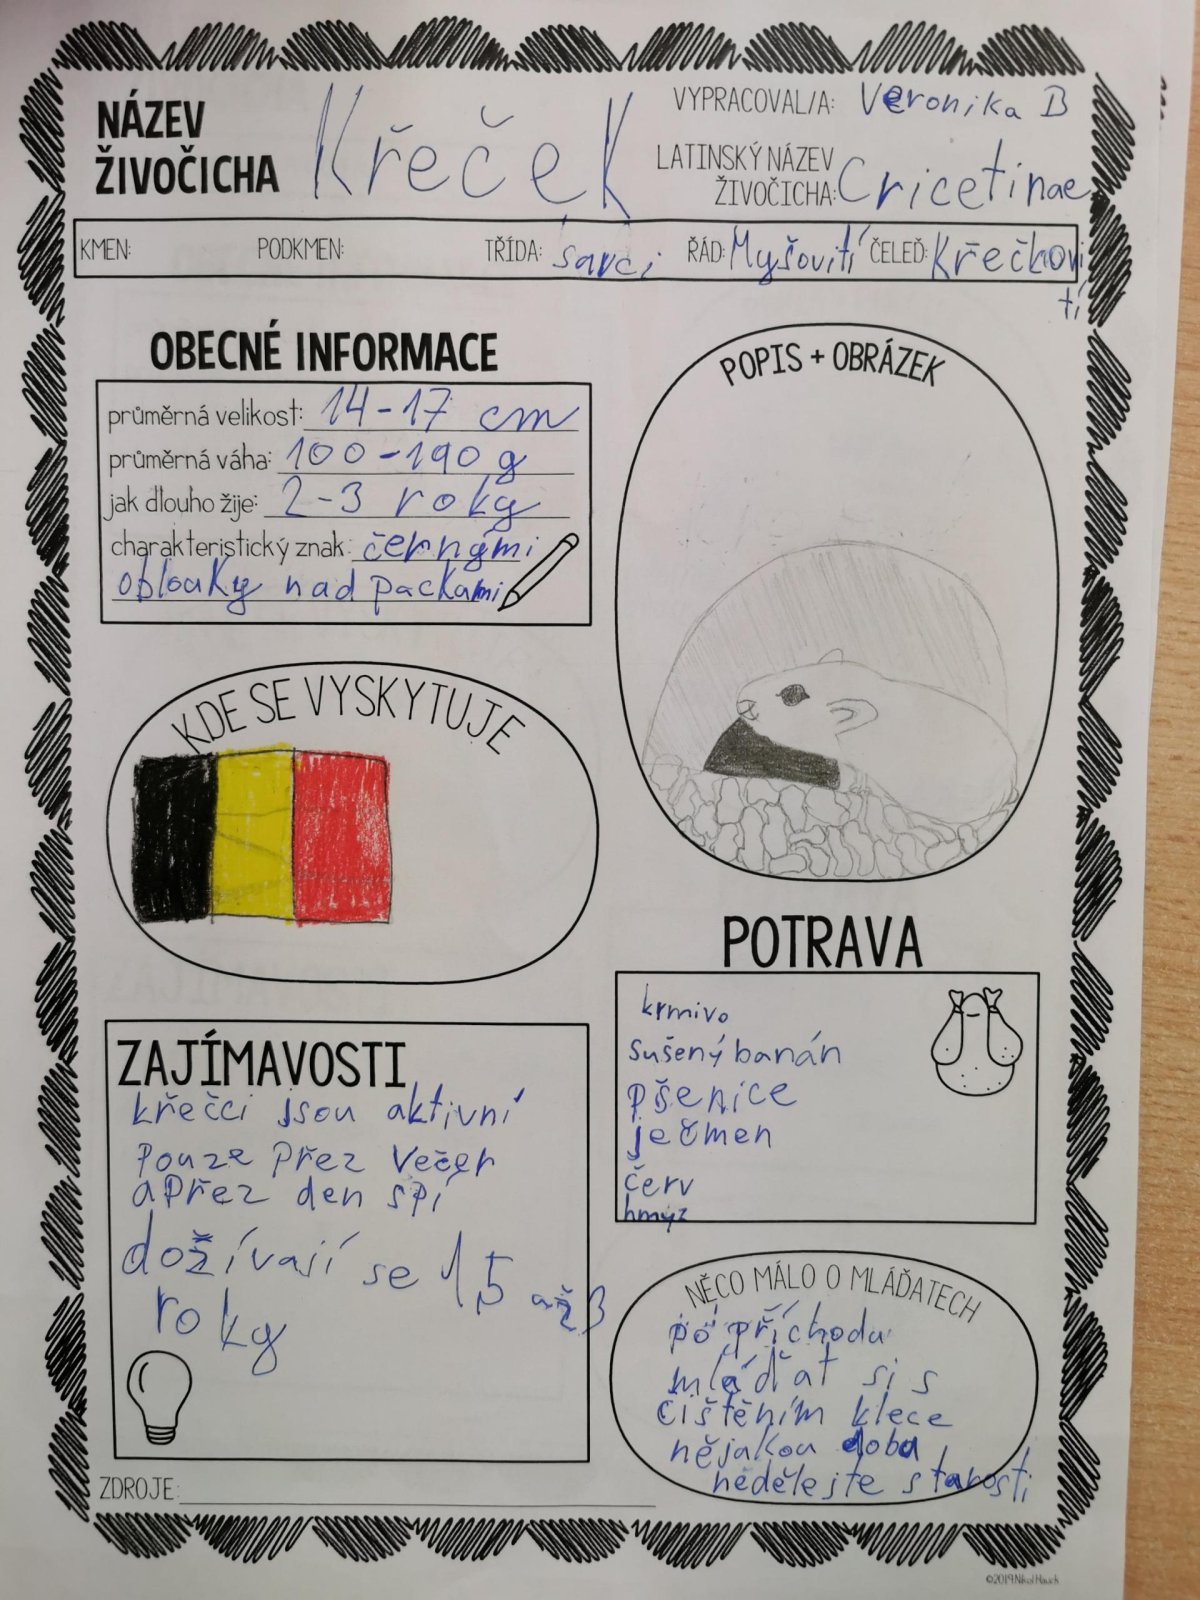 NÁZEV
ŽIVOČICHA
Křeček
VYPRACOVAL/A: Veronika B
LATINSKÝ NÁZEV
ŽIVOČICHA: Cricetinae
KMEN: PODKMEN: TŘÍDA: savci ŘÁD: Myšovití ČELEĎ: Křečkovi
tí
OBECNÉ INFORMACE
průměrná velikost: 14-17 cm
průměrná váha: 100-190 g
jak dlouho žije: 2-3 roky
charakteristický znak: černými
oblouky nad packami
POPIS + OBRÁZEK
KDE SE VYSKYTUJE
POTRAVA
krmivo
sušený banán
pšenice
ječmen
červ
hmyz
ZAJÍMAVOSTI
křečci jsou aktivní
pouze přez večer
a přez den spí
dožívají se 1,5 až 3
roky
NĚCO MÁLO O MLÁĎATECH
po příchodu
mláďat si s
čištěním klece
nějakou dobu
nedělejte starosti
ZDROJE:
©2019 Nikol Hauck